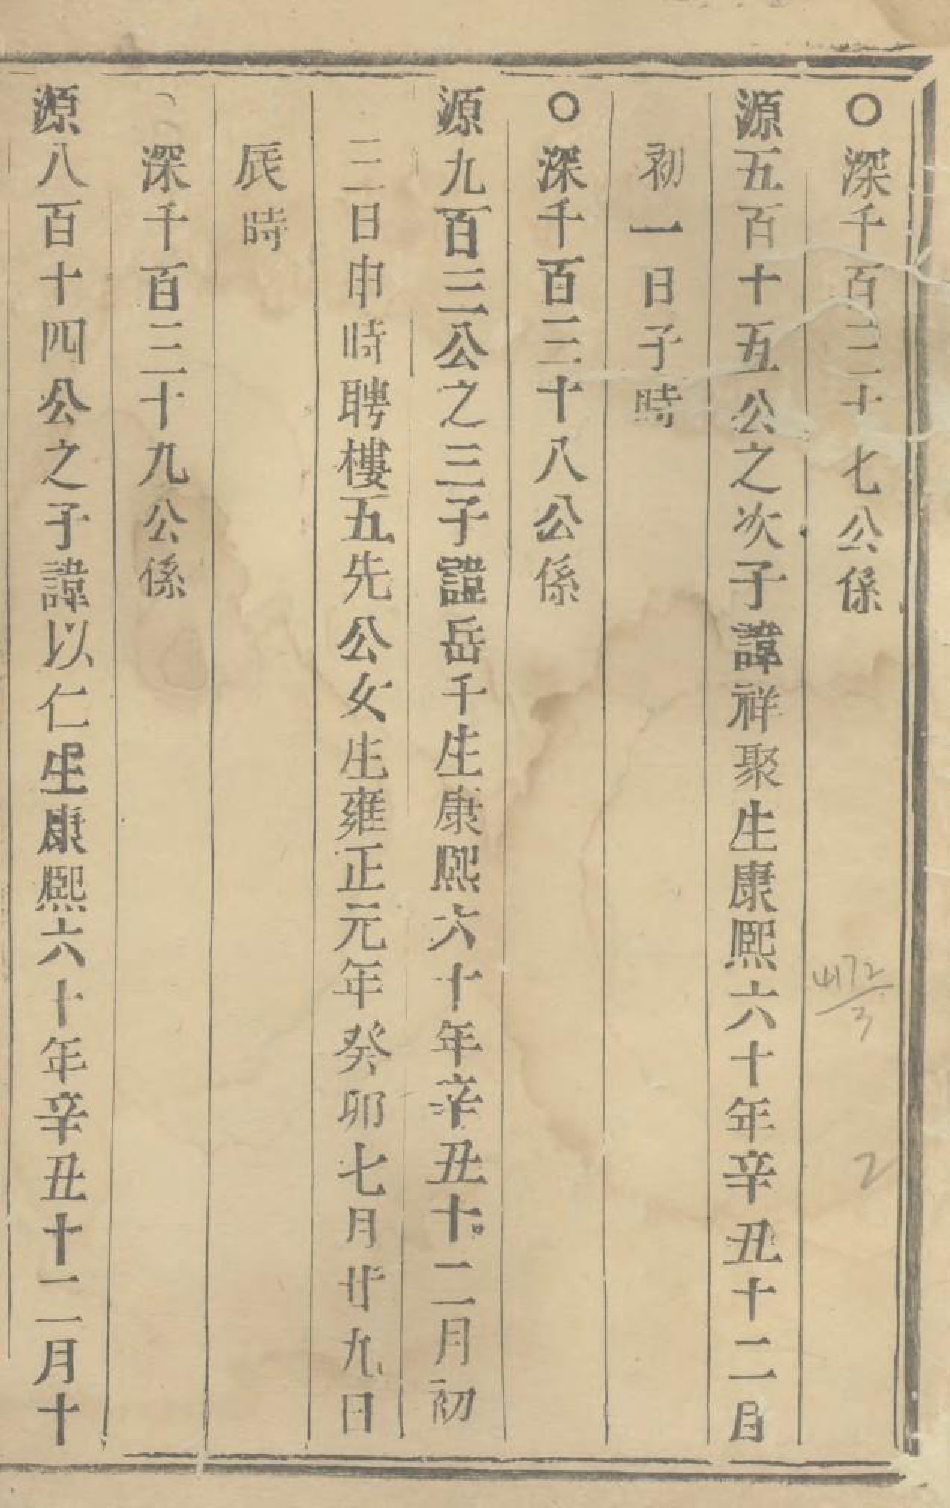 ○深千百三十七公係
源五百十五公之次子諱祥聚生康熙六十年辛丑十二月
初一日子時
○深千百三十八公係
源九百三公之三子諱岳千生康熙六十年辛丑十二月初
三日申時聘樓五先公女生雍正元年癸卯七月廿九日
辰時
深千百三十九公係
源八百十四公之子諱以仁生康熙六十年辛丑十二月十
4172
3
2